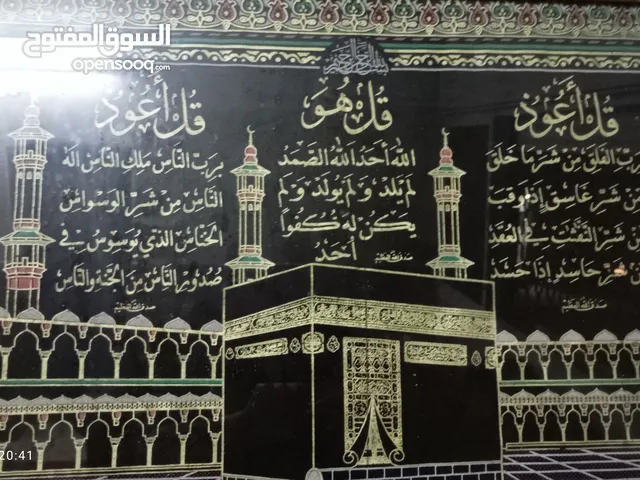 السوق المفتوح
opensooq.com
بسم الله الرحمن الرحيم
قل أعوذ
برب الفلق من شر ما خلق
من شر غاسق إذا وقب
من شر النفثت في العقد
شر حاسد إذا حسد
صدق الله العظيم
قل هو
الله أحد الله الصمد
لم يلد ولم يولد ولم
يكن له كفوا
أحد
صدق الله العظيم
قل أعوذ
برب الناس ملك الناس اله
الناس من شر الوسواس
الخناس الذي يوسوس في
صدور الناس من الجنة والناس
صدق الله العظيم
20:41